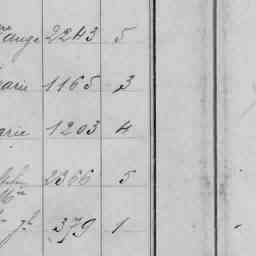 ange 2243 5
arie 1165 3
arie 1203 4
2366 5
379 1